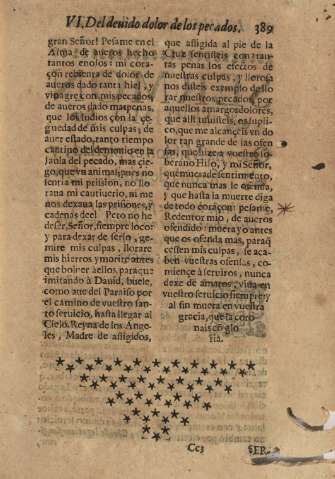 VI. Del deuido dolor de los pecados. 389
gran Señor! Pesame en el
Alma de aueros hecho
tantos enojos: mi cora-
çon rebienta de dolor de
aueros dado tanta hiel, y
vinagre con mis pecados
de aueros dado mas penas,
que los Iudios con la ce-
guedad de mis culpas; de
auer estado tanto tiempo
cautiuo del demonio en la
Jaula del pecado, mas cie-
go, que vn animal, pues no
sentia mi prision, no llo-
raua mi cautiuerio, ni me
nos dexaua las prisiones, y
cadenas deel. Pero no he
de ser, Señor, siempre loco:
y para dexar de serlo, ge-
mire mis culpas, llorare
mis hierros y morire antes
que boluer à ellos, para que
imitando à Dauid, buele,
como aue del Paraiso por
el camino de vuestro san-
to seruicio, hasta llegar al
Cielo. Reyna de los Ange-
les, Madre de afligidos,
que afligida al pie de la
Cruz sentistes con tan-
tas penas los efectos de
nuestras culpas, y llorosa
nos disteis exemplo de llo
rar nuestros pecados, por
aquellos amargos dolores,
que alli tuuisteis, os supli-
co, que me alcanceis vn do
lor tan grande de las ofen
sas, que hize a vuestro so-
berano Hijo, y mi Señor,
que muera de sentimiento,
que nunca mas le ofenda,
y que hasta la muerte diga
de todo coraçon: pesame,
Redentor mio, de aueros
ofendido: muera yo antes
que os ofenda mas, paraq̃
cessen mis culpas, se aca-
ben vuestras ofensas, co-
mience à seruiros, nunca
dexe de amaros, viua en
vuestro seruicio siempre, y
al fin muera en vuestra
gracia, que es coro
na is en glo
ria.
Cc3 SER-